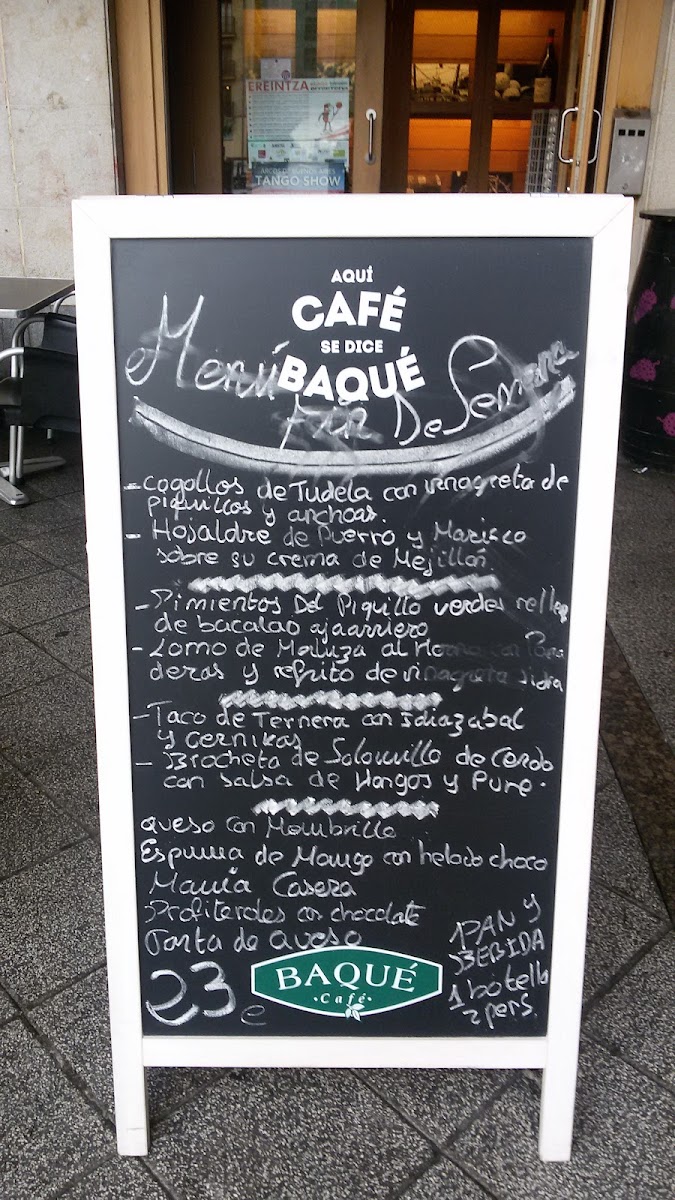 EREINTZA
TANGO SHOW
AQUÍ
CAFÉ
SE DICE
BAQUÉ
Menú Fin De Semana
- cogollos de Tudela con vinagreta de
piquillos y anchoas.
- Hojaldre de Puerro y Marisco
sobre su crema de Mejillón
- Pimientos Del Piquillo verdes
de bacalao ajoarriero
- Lomo de Merluza al Horno con Pana
deras y refrito de vinagreta sidra
- Taco de Ternera con Idiazabal
y Gernikas
- Brocheta de Solomillo de Cerdo
con salsa de Hongos y Pure.
Queso con Membrillo
Espuma de Mango con helado choco
Mamia Casera
Profiteroles con chocolate
Tarta de Queso
23 e
BAQUÉ
Café
PAN Y
BEBIDA
1 botella
2 pers.